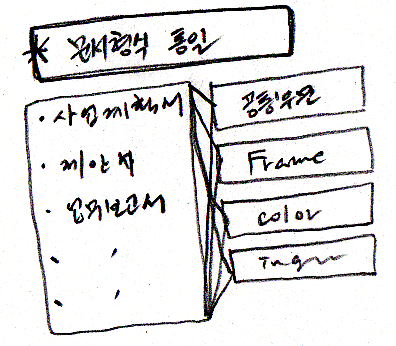 * 문서형식 통일
· 사업계획서
· 제안서
· 업무보고서
공통부분
Frame
color